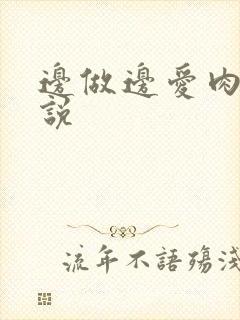 邊做邊愛肉
說
流年不語殤淺